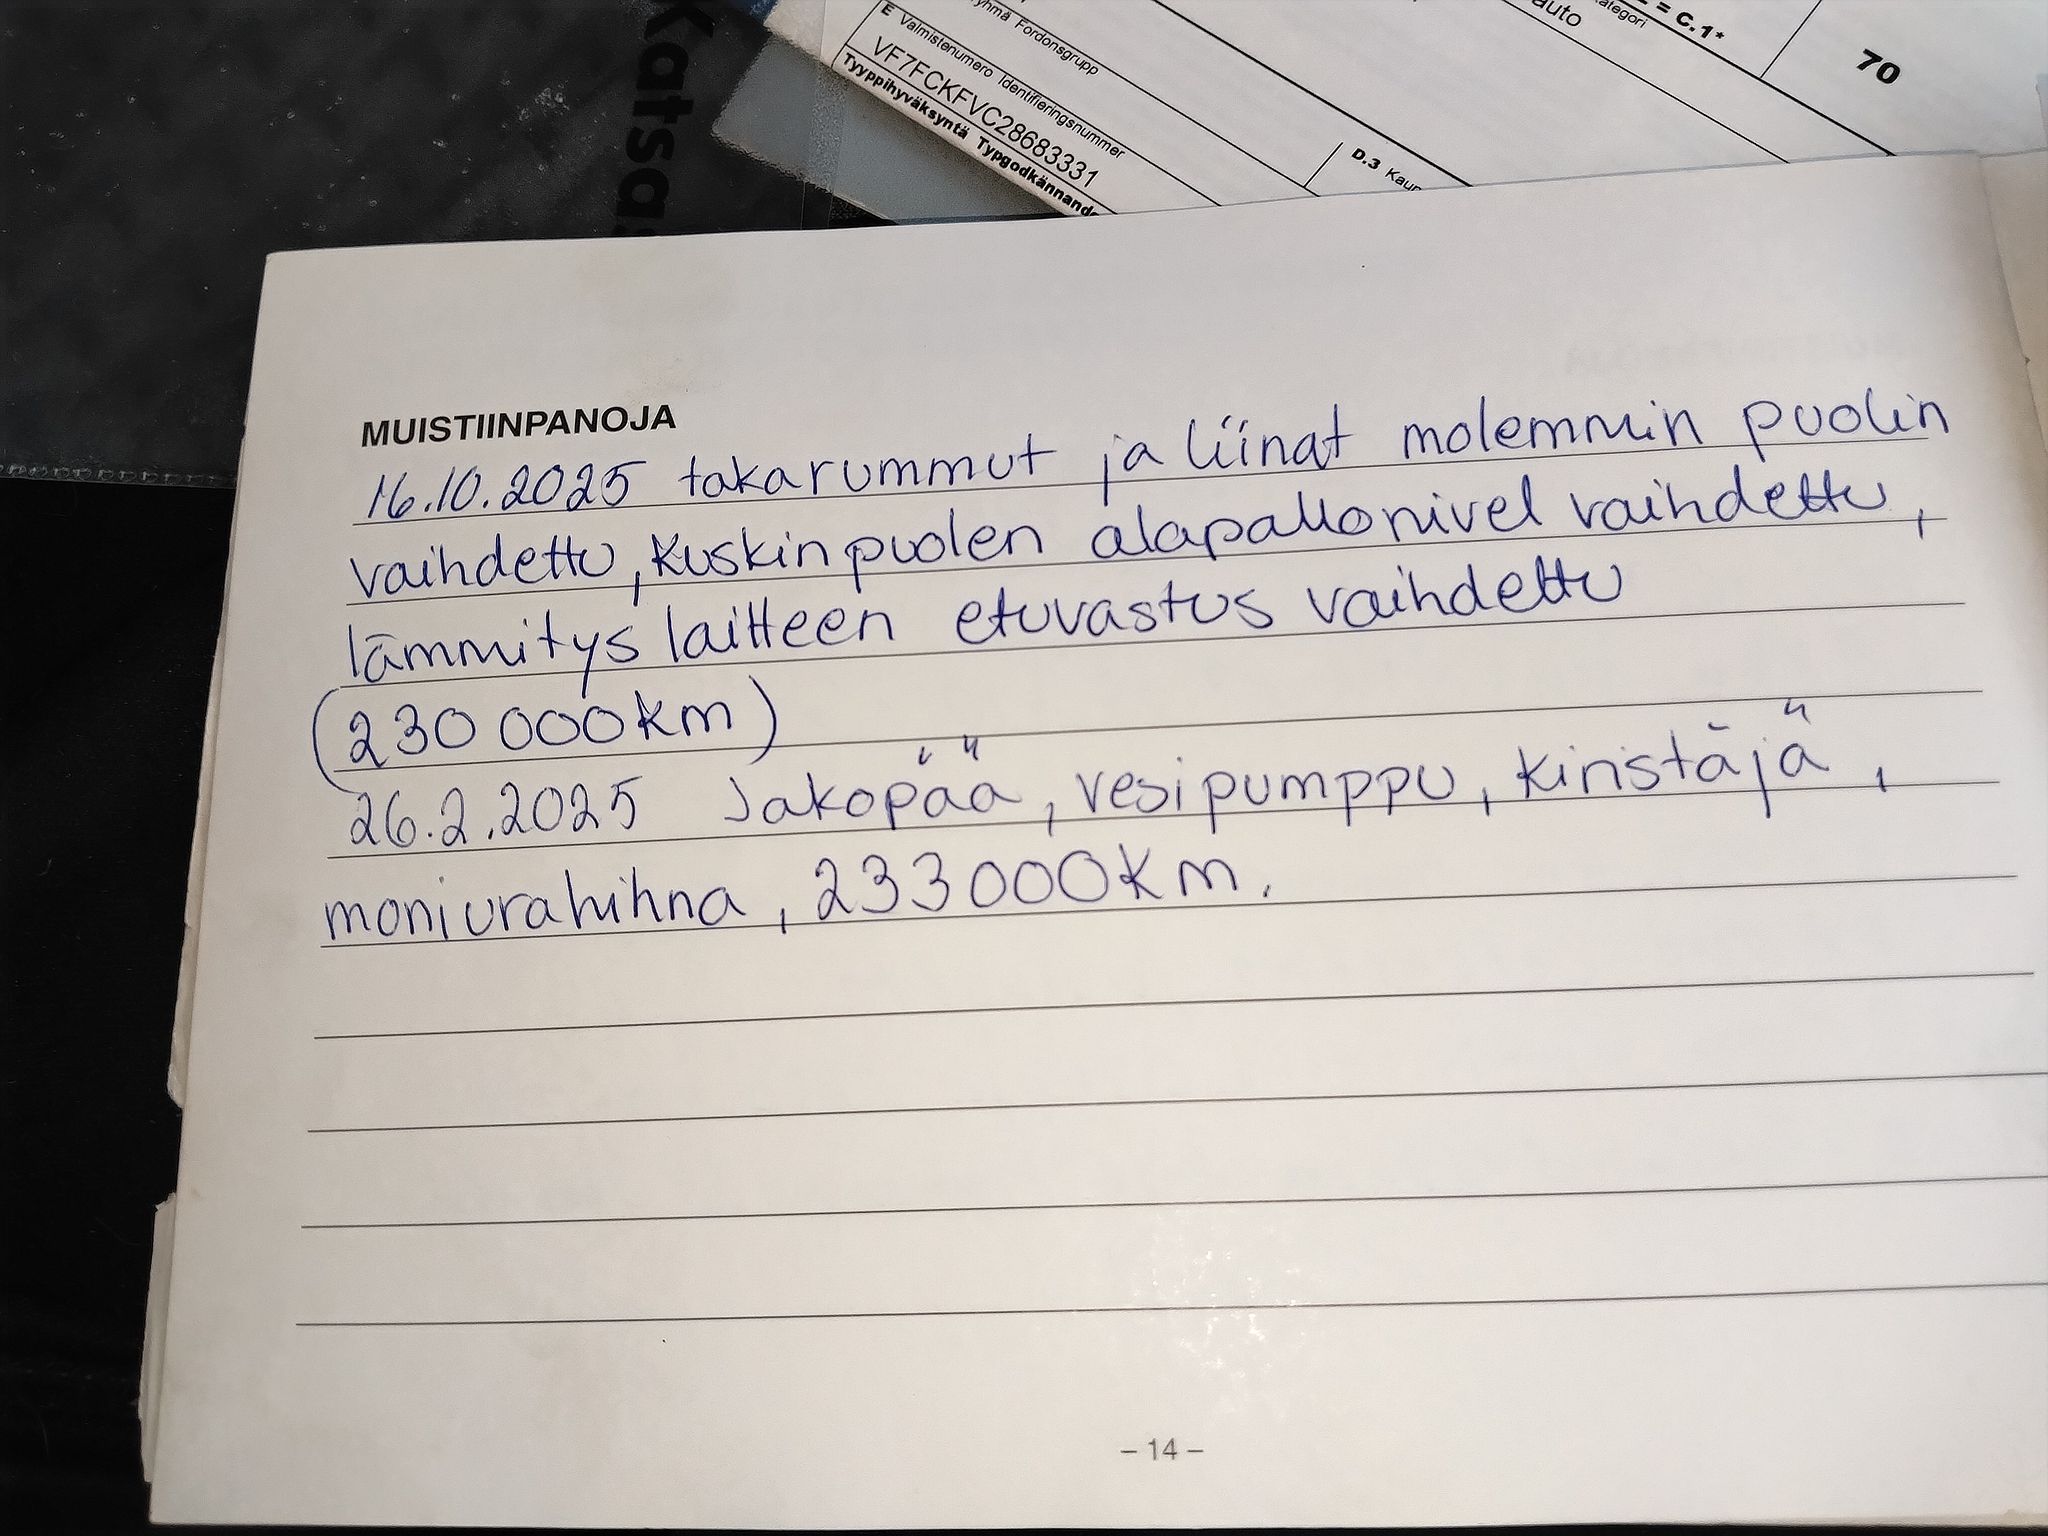 Katsas
yhmä Fordonsgrupp
E Valmistenumero Identifieringsnummer
VF7FCKFVC28683331
Tyyppihyväksyntä Typgodkännande
auto
kategori
= C.1*
70
D.3 Kaup
MUISTIINPANOJA
16.10.2025 takarummut ja liinat molemmin puolin
vaihdettu, kuskin puolen alapallonivel vaihdettu,
lämmitys laitteen etuvastus vaihdettu
(230 000km)
26.2.2025 Jakopää, vesipumppu, kiristäjä,
moniurahihna, 233000km.
– 14 –